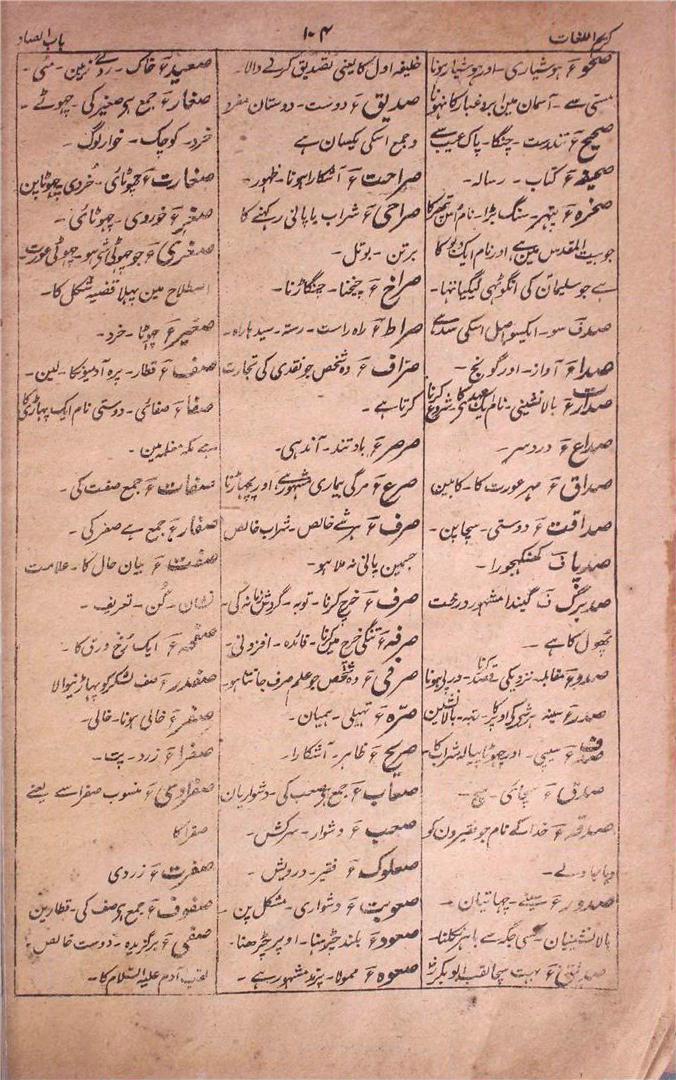 کریم اللغات
۱۰۴
باب الصاد
صحو ء ہوشیاری۔ اور ہوشیار ہونا
مستی سے۔ آسمان میں ابر و غبار کا نہونا
صحیح ء تندرست۔ چنگا۔ پاک عیب سے
صحیفہ ء کتاب۔ رسالہ۔
صخرہ ء پتہر۔ سنگ بڑا۔ نام اس پتھر کا
جو بیت المقدس میں ہے، اور نام ایک دیو کا
ہے جو سلیمان کی انگوٹہی لیگیا تہا۔
صد ف سو۔ ایکسو اصل اسکی سد ہے
صدا ء آواز۔ اور گونج۔
صدارت ء بالا نشینی۔ نام ایک عہدیکا شروع کرنا
صداع ء درد سر۔
صداق ء مہر عورت کا۔ کابین
صداقت ء دوستی۔ سچاپن۔
صد پا ف کھنکہجورا۔
صد برگ ف گیندا مشہور درخت
پھول کا ہے۔
صدد ء مقابلہ۔ نزدیکی۔ قصد کرنا۔ درپی ہونا
صدر ء سینہ۔ ہر شی کے اوپر کا۔ رتبہ۔ بالا نشین
صدف ء سیپی۔ اور چھوٹا پیالہ شراب کا۔
صدق ء سچائی۔ سچ۔
صدقہ ء خدا کے نام جو فقیرون کو
دیا جاوے۔
صدور ء سینے۔ چہاتیان۔
بالا نشینیان۔ کسی جگہ سے باہر نکلنا۔
صدیق ء بہت سچا لقب ابوبکر
خلیفہ اول کا یعنی تصدیق کرنے والا۔
صدیق ء دوست۔ دوستان مفرد
و جمع اسکی یکسان ہے
صراحت ء آشکارا ہونا۔ ظہور۔
صراحی ء شراب یا پانی رکہنے کا
برتن۔ بوتل۔
صراخ ء چیخنا۔ چنگاڑنا۔
صراط ء راہ راست۔ رستہ۔ سیدہا راہ۔
صراف ء وہ شخص جو نقدی کی تجارت
کرتا ہے۔
صرصر ء باد تند۔ آندہی۔
صرع ء مرگی بیماری مشہور ہے، اور پچہاڑنا
صرف ء ہر شے خالص۔ شراب خالص
جسمین پانی نہ ملا ہو۔
صرف ء خرچ کرنا۔ توبہ۔ گردش زمانہ کی۔
صرفہ ء تنگی خرچ میں کرنا۔ فائدہ۔ افزونی۔
صرفی ء وہ شخص جو علم صرف جانتا ہو۔
صرہ ء تہیلی۔ ہمیان۔
صریح ء ظاہر۔ آشکارا۔
صعاب ء جمع ہی صعب کی۔ دشواریان
صعب ء دشوار۔ سرکش۔
صعلوک ء فقیر۔ درویش۔
صعوبت ء دشواری۔ مشکل پن۔
صعود ء بلند چڑہنا۔ اوپر چڑھنا۔
صعوہ ء ممولا۔ پرند مشہور ہے۔
صعید ء خاک۔ روے زمین۔ مٹی۔
صغار ء جمع ہی صغیر کی۔ چھوٹے۔
خرد۔ کوچک۔ خوار لوگ۔
صغارت ء چھوٹائی۔ خردی۔ چھوٹاپن
صغر ء خوروی۔ چھوٹائی۔
صغری ء جو چھوٹی شی ہو۔ چھوٹی عورت۔
اصطلاح مین پہلا قضیہ شکل کا۔
صغیر ء چھوٹا۔ خرد۔
صف ء قطار۔ پرہ آدمیونکا۔ لین۔
صفا ء صفائی۔ دوستی نام ایک پہاڑی کا
ہے مکہ معظمہ مین۔
صفات ء جمع صفت کی۔
صفار ء جمع ہے صفر کی۔
صفت ء بیان حال کا۔ علامت
نشان۔ گن۔ تعریف۔
صفحہ ء ایک رخ ورق کا۔
صفدر ء صف لشکر کو پہاڑنیوالا
صفر ء خالی ہونا۔ خالی۔
صفرا ء زرد۔ پت۔
صفراوی ء منسوب صفرا سے یعنے
صفرا کا
صفرت ء زردی
صفوف ء جمع ہی صف کی۔ قطارین
صفی ء برگزیدہ۔ دوست خالص
لقب آدم علیہ السلام کا۔